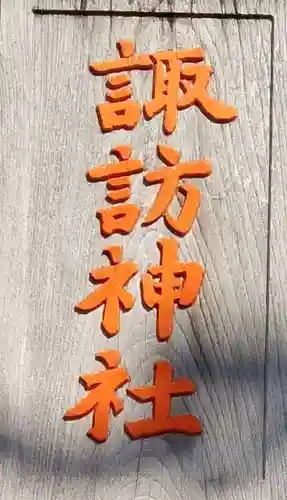 諏訪神社